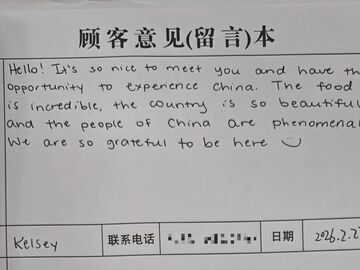 顾客意见(留言)本
Hello! It's so nice to meet you and have th
opportunity to experience China. The food
is incredible, the country is so beautiful
and the people of China are phenomenal
We are so grateful to be here
Kelsey 联系电话 日期 2026.2.2